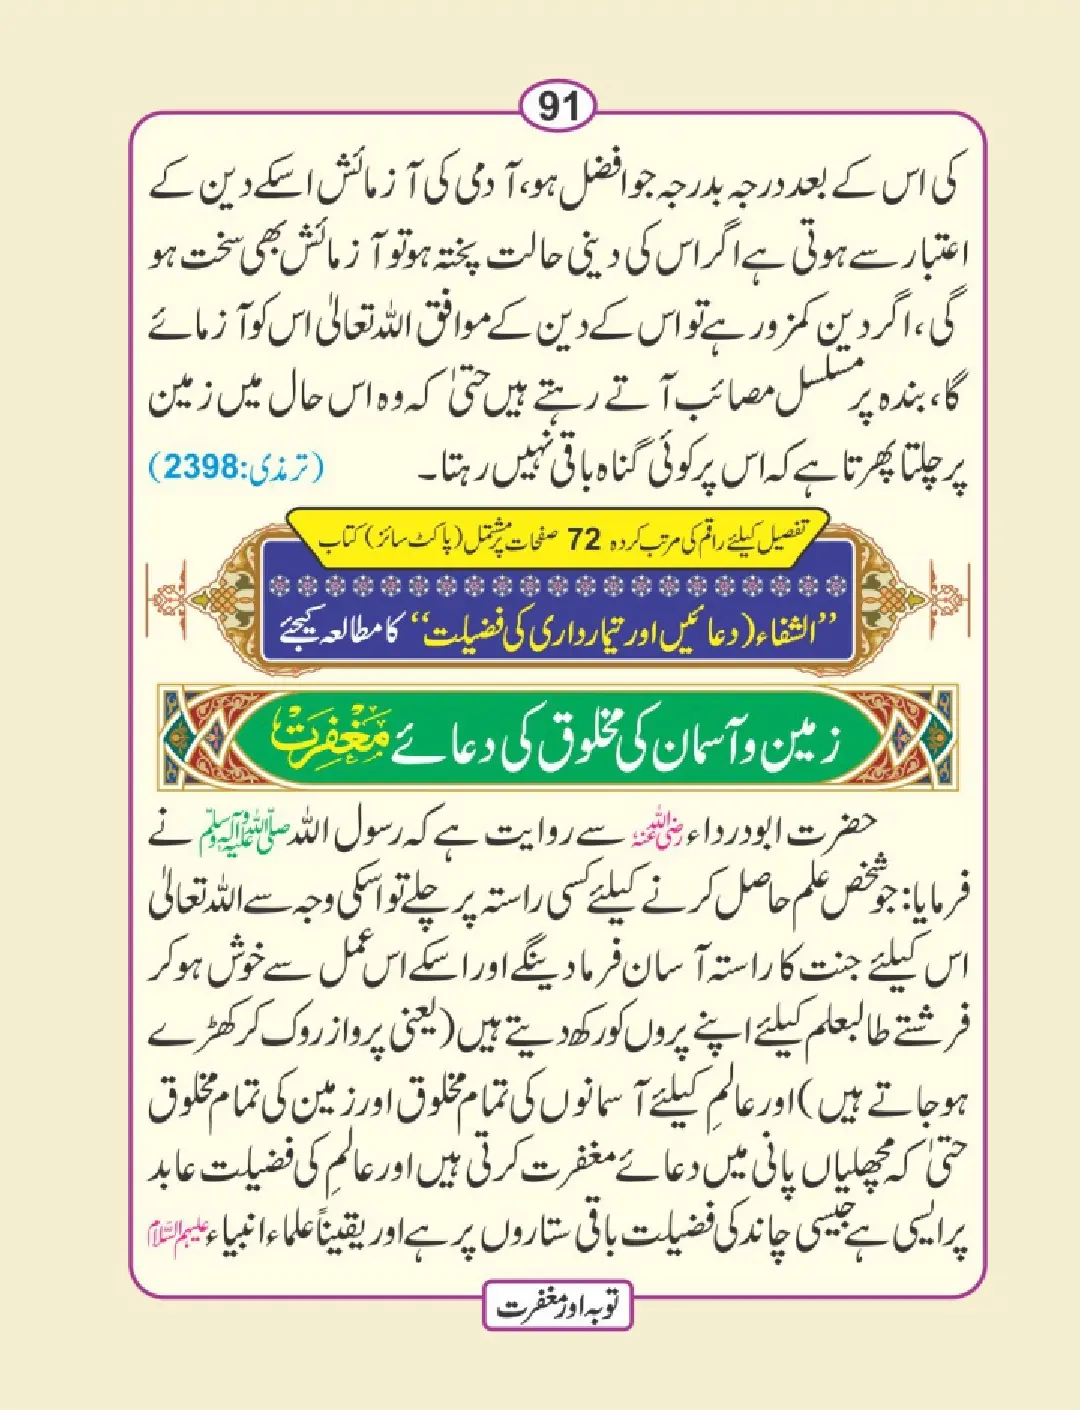 91
کی اس کے بعد درجہ بدرجہ جو افضل ہو، آدمی کی آزمائش اسکے دین کے
اعتبار سے ہوتی ہے اگر اس کی دینی حالت پختہ ہو تو آزمائش بھی سخت ہو
گی، اگر دین کمزور ہے تو اس کے دین کے موافق اللہ تعالیٰ اس کو آزمائے
گا، بندہ پر مسلسل مصائب آتے رہتے ہیں حتیٰ کہ وہ اس حال میں زمین
پر چلتا پھرتا ہے کہ اس پر کوئی گناہ باقی نہیں رہتا۔ (ترمذی:2398)
تفصیل کیلئے راقم کی مرتب کردہ 72 صفحات پر مشتمل (پاکٹ سائز) کتاب
”الشفاء (دعائیں اور تیمارداری کی فضیلت“ کا مطالعہ کیجئے
زمین و آسمان کی مخلوق کی دعائے مَغْفِرَتْ
حضرت ابودرداء رضی اللہ عنہ سے روایت ہے کہ رسول اللہ صلی اللہ علیہ وآلہ وسلم نے
فرمایا: جو شخص علم حاصل کرنے کیلئے کسی راستہ پر چلے تو اسکی وجہ سے اللہ تعالیٰ
اس کیلئے جنت کا راستہ آسان فرما دینگے اور اسکے اس عمل سے خوش ہو کر
فرشتے طالبعلم کیلئے اپنے پروں کو رکھ دیتے ہیں (یعنی پرواز روک کر کھڑے
ہو جاتے ہیں) اور عالمِ کیلئے آسمانوں کی تمام مخلوق اور زمین کی تمام مخلوق
حتیٰ کہ مچھلیاں پانی میں دعائے مغفرت کرتی ہیں اور عالمِ کی فضیلت عابد
پر ایسی ہے جیسی چاند کی فضیلت باقی ستاروں پر ہے اور یقیناً علماء انبیاء علیہم السلام
توبہ اور مغفرت